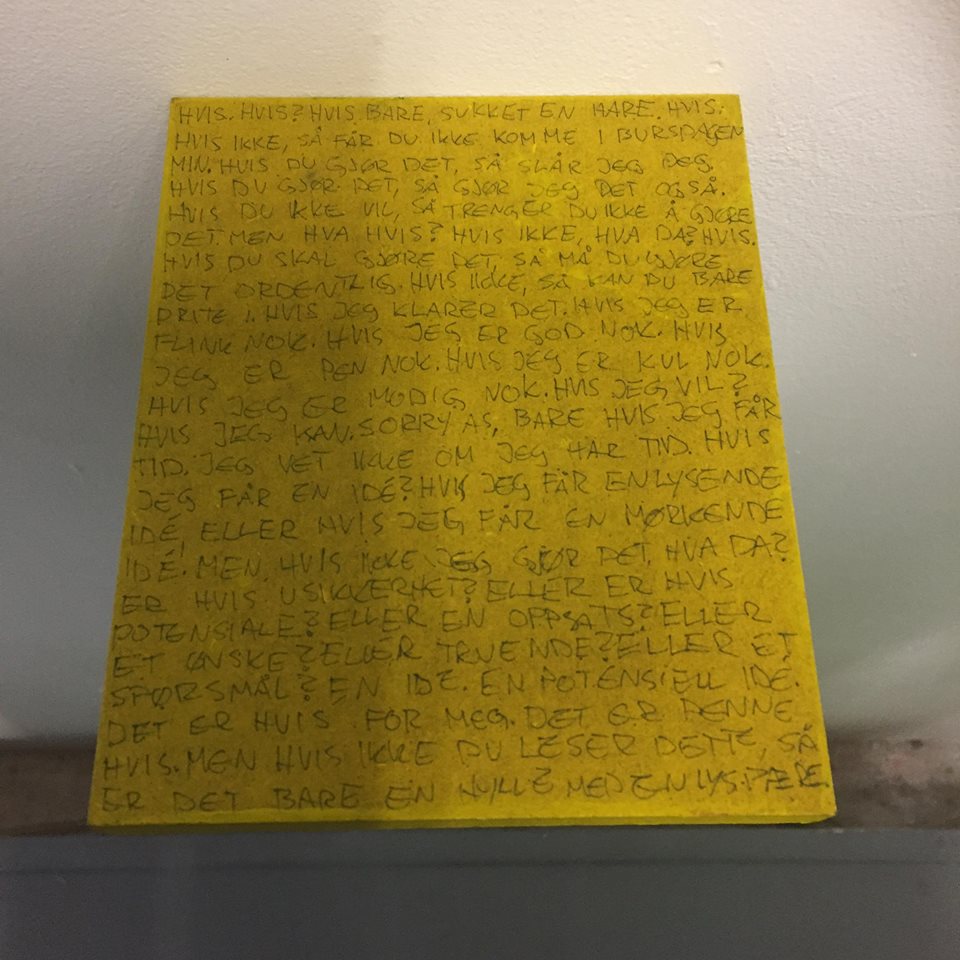 HVIS. HVIS? HVIS BARE, SUKKET EN HARE. HVIS.
HVIS IKKE, SÅ FÅR DU IKKE KOMME I BURSDAGEN
MIN. HVIS DU GJØR DET, SÅ SLÅR JEG DEG.
HVIS DU GJØR DET, SÅ GJØR JEG DET OGSÅ.
HVIS DU IKKE VIL, SÅ TRENGER DU IKKE Å GJØRE
DET. MEN HVA HVIS? HVIS IKKE, HVA DA? HVIS.
HVIS DU SKAL GJØRE DET, SÅ MÅ DU GJØRE
DET ORDENTLIG. HVIS IKKE, SÅ KAN DU BARE
DRITE I. HVIS JEG KLARER DET. HVIS JEG ER
FLINK NOK. HVIS JEG ER GOD NOK. HVIS
JEG ER PEN NOK. HVIS JEG ER KUL NOK.
HVIS JEG ER MODIG NOK. HVIS JEG VIL?
HVIS JEG KAN. SORRY AS, BARE HVIS JEG FÅR
TID. JEG VET IKKE OM JEG HAR TID. HVIS
JEG FÅR EN IDÉ? HVIS JEG FÅR EN LYSENDE
IDÉ ELLER HVIS JEG FÅR EN MØRKENDE
IDÉ! MEN, HVIS IKKE JEG GJØR DET, HVA DA?
ER HVIS USIKKERHET? ELLER ER HVIS
POTENSIALE? ELLER EN OPPSATS? ELLER
ET ØNSKE? ELLER TRUENDE? ELLER ET
SPØRSMÅL? EN IDÉ. EN POTENSIELL IDÉ.
DET ER HVIS FOR MEG. DET ER DENNE
HVIS. MEN HVIS IKKE DU LESER DETTE, SÅ
ER DET BARE EN HYLLE MED EN LYSPÆRE.